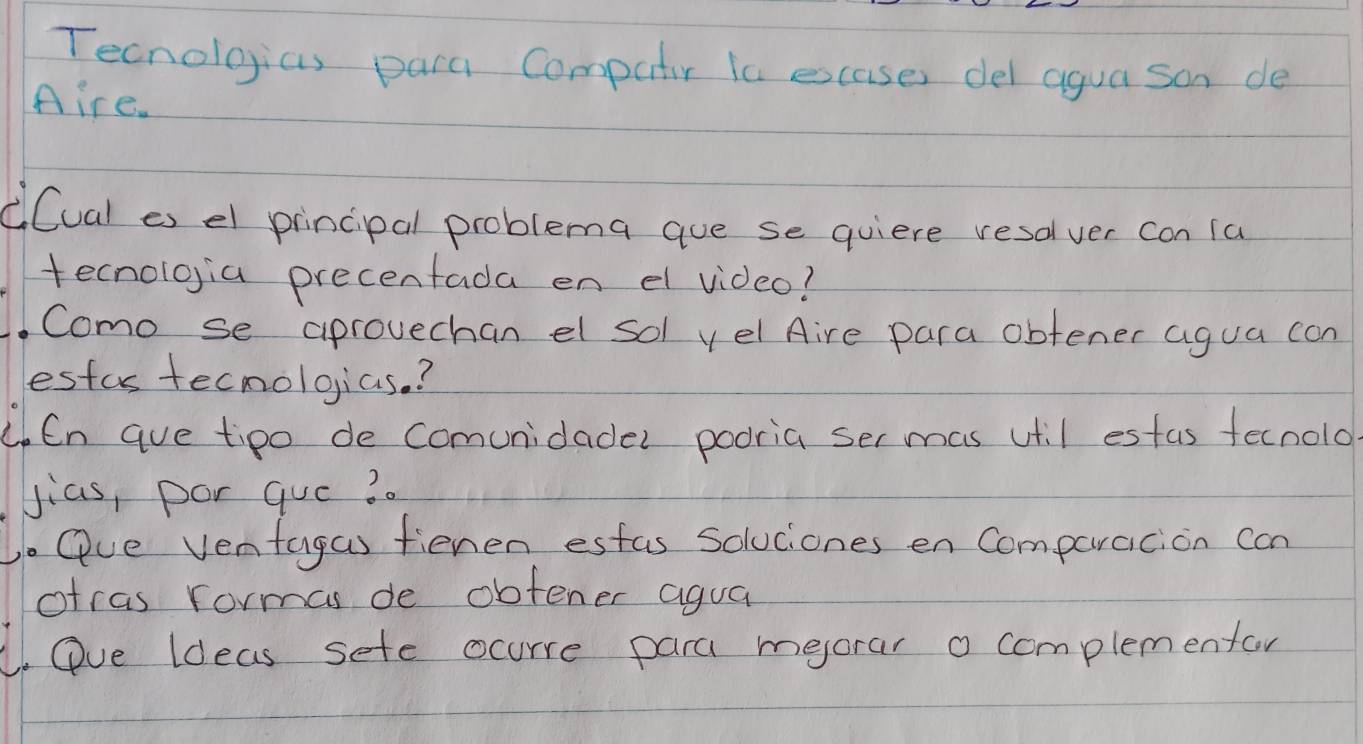 Tecnolgias para Compatir la escases del agua son de
Aire.
¿Cual es el principal problema que se quiere resolver con la
tecnologia precentada en el video?
¿. Como se aprovechan el sol y el Aire para obtener agua con
estas tecnologias.?
¿. En que tipo de comunidades podria ser mas util estas tecnolo-
jias, por que ?.
¿. Que ventagas tienen estas soluciones en Comparación con
otras Formas de obtener agua
¿. Que Ideas sete ocurre para mejorar o complementar